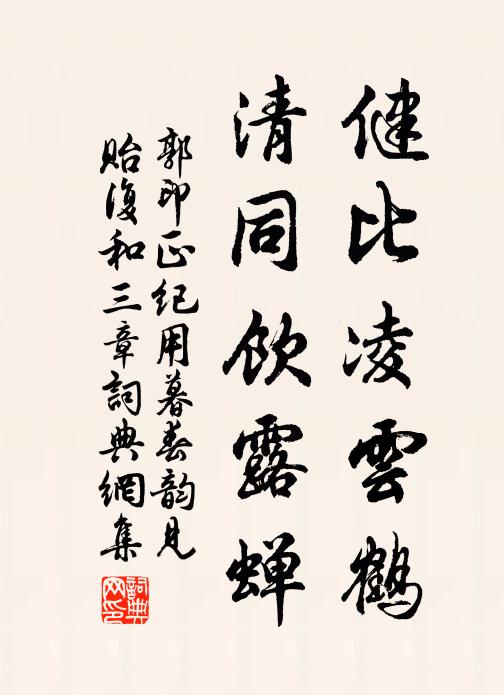 健比凌雲鶴
清同飲露蟬
郭印正紀用暮春韵見
貽復和三章詞典網集
詞典网印